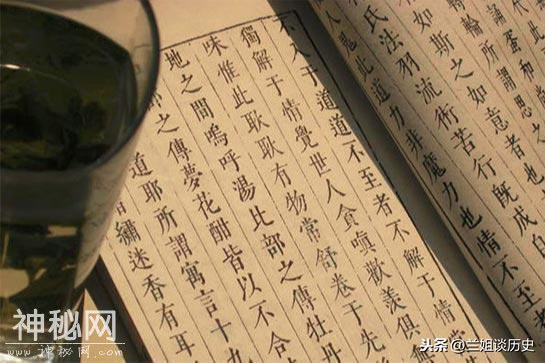 所謂
如斯之如意者也
氏法羽流術苦行既成自
人鬼此道力非魔力也情不至
不入于道道不至者不解于情
獨解于情覺世人貪嗔歡羨俱
味惟此耿耿有物常舒卷于先
地之間嗚呼湯比部之傳牡丹
之傳夢花酣皆以不合
道耶所謂寓言十
繡迷香有其
神秘网
www.shenmiw.com
头条 @兰姐谈历史